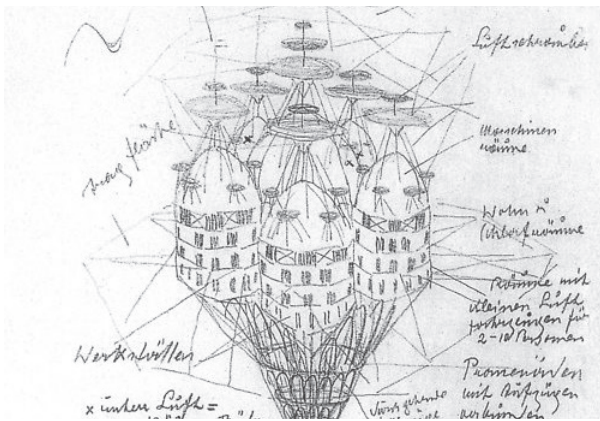 Luftschrauben
Maschinen
räume
Tragfläche
Wohn u
Schlafräume
Räume mit
kleinen Luft
fahrzeugen für
2-10 Personen
Werkstätten
Promenaden
mit Aufzügen
verbunden
x untere Luft=